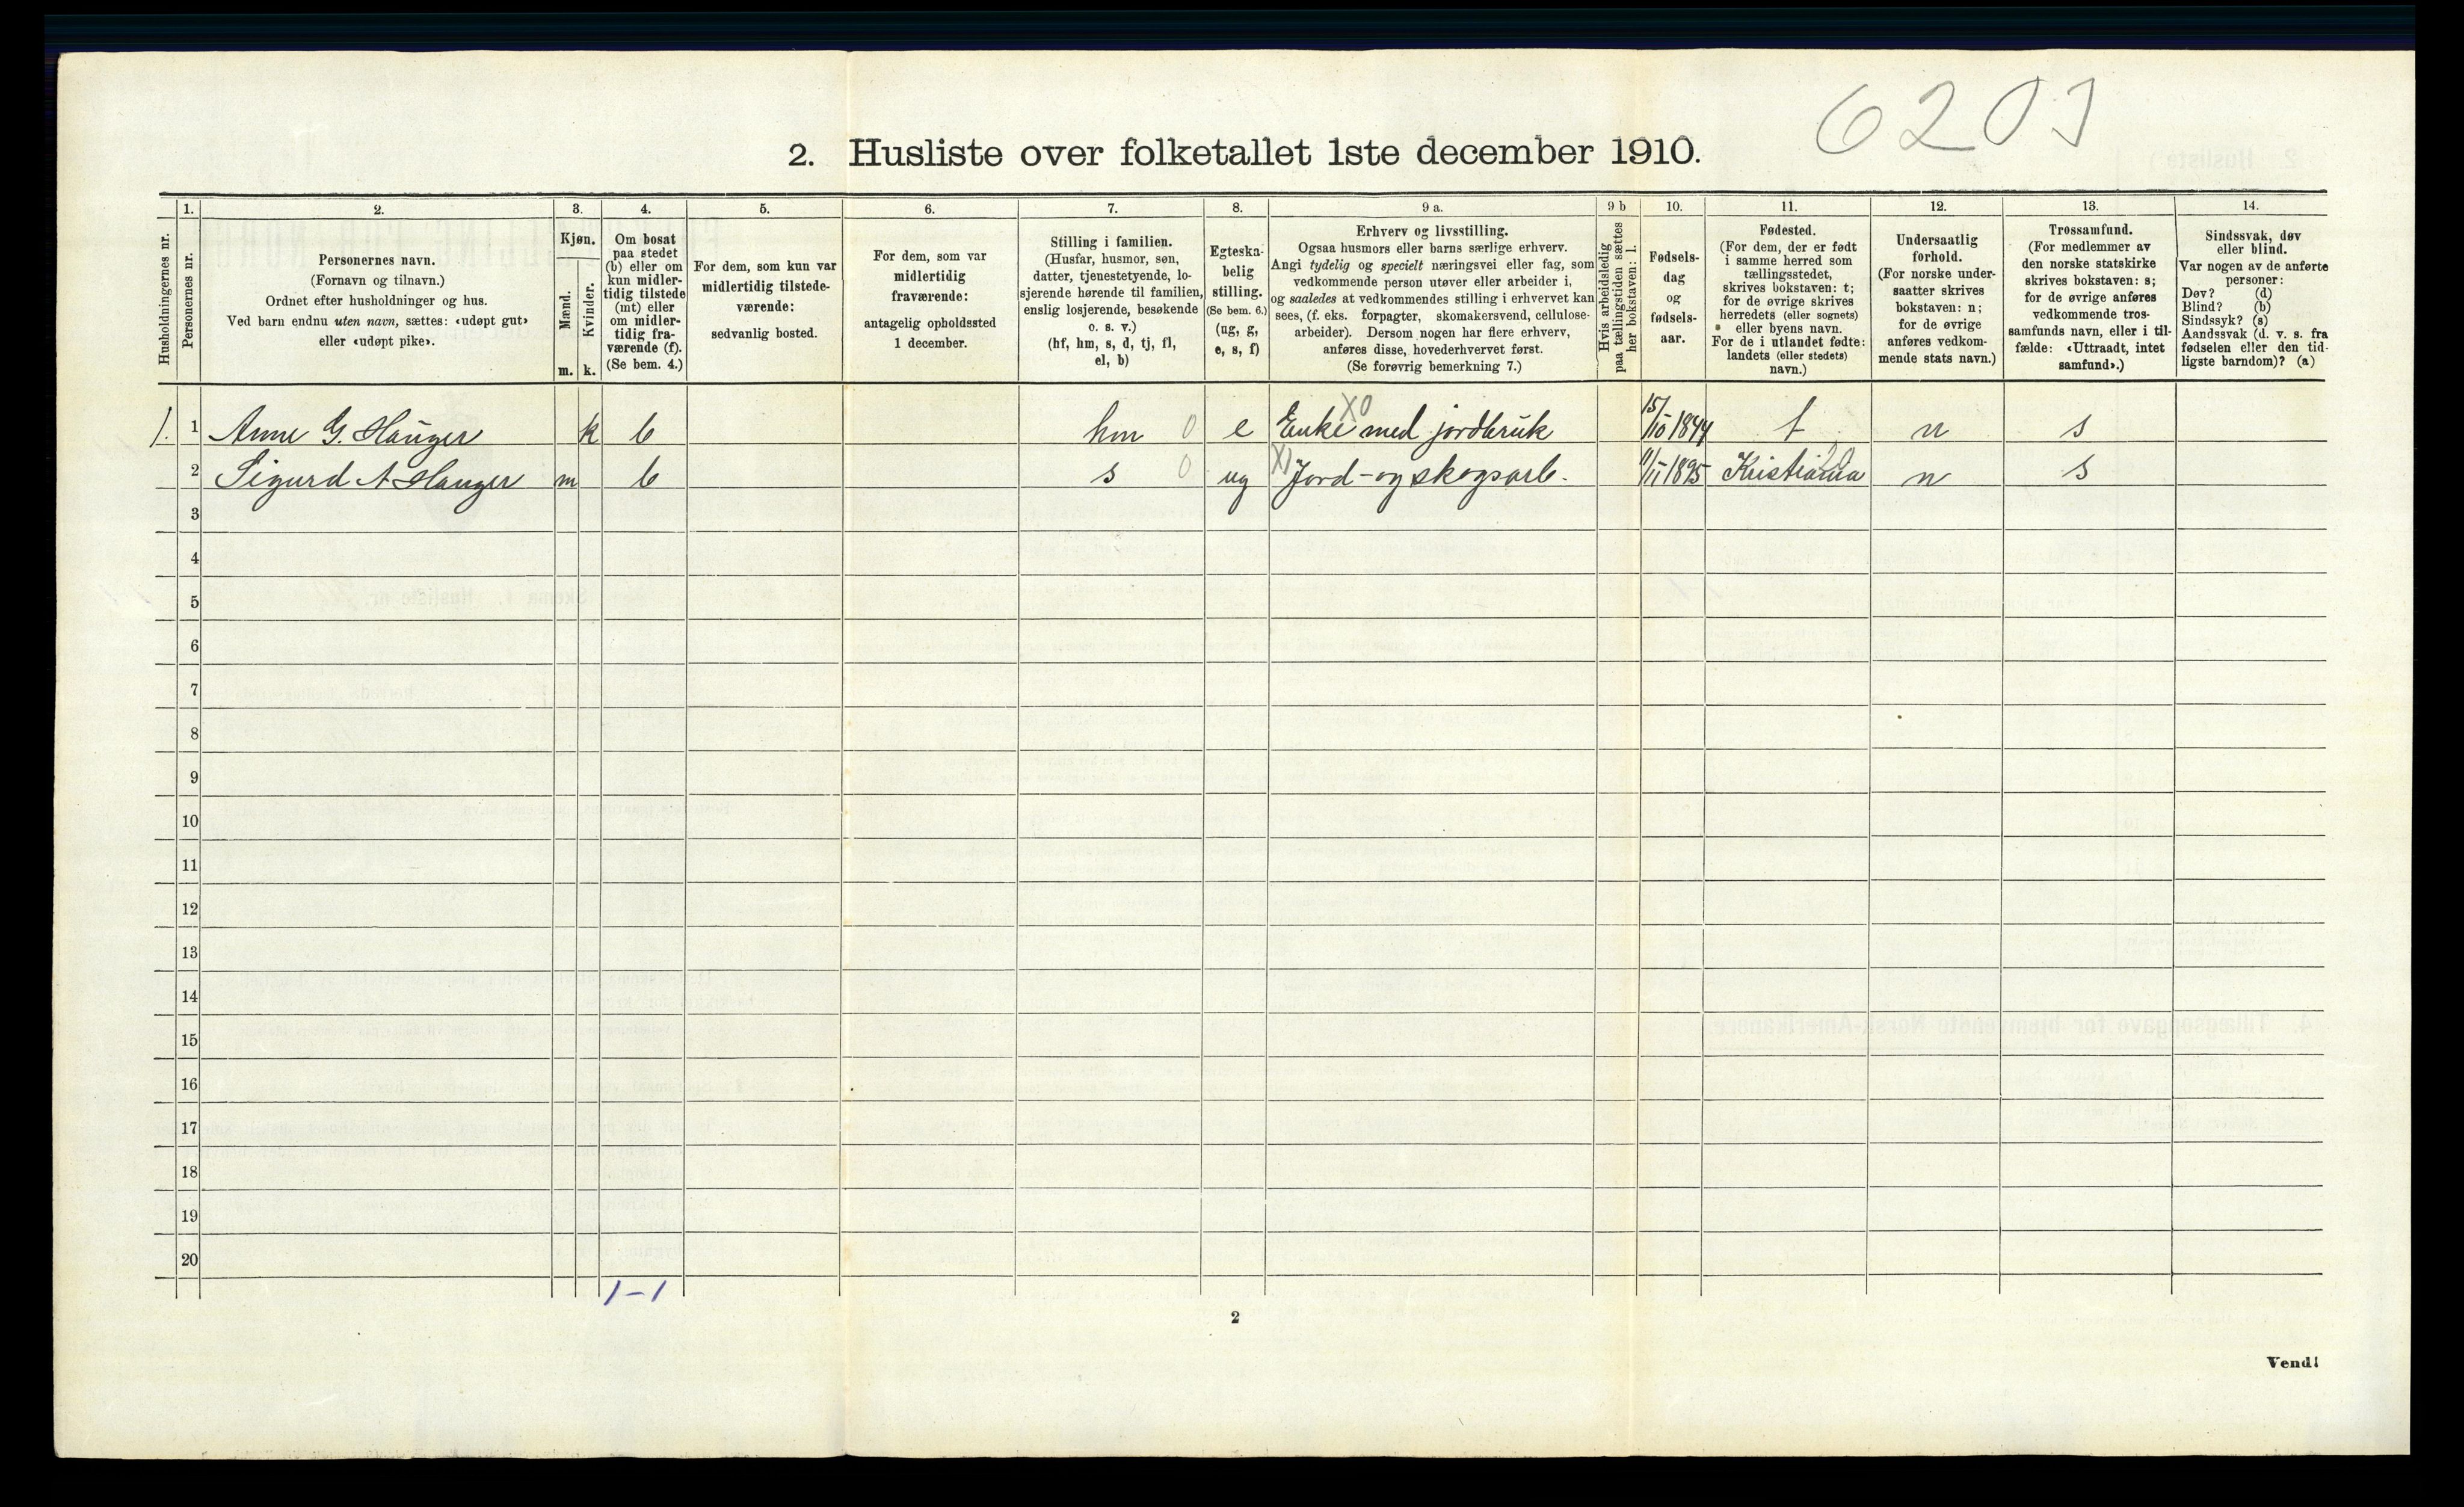 6203
2. Husliste over folketallet 1ste december 1910.
Husholdningernes nr.
1.
Personernes nr.
2.
Personernes navn.
(Fornavn og tilnavn.)
Ordnet efter husholdninger og hus.
Ved barn endnu uten navn, sættes: «udøpt gut»
eller «udøpt pike».
3.
Kjøn.
Mænd.
Kvinder.
m. k.
4.
Om bosat
paa stedet
(b) eller om
kun midler-
tidig tilstede
(mt) eller
om midler-
tidig fra-
værende (f).
(Se bem. 4.)
5.
For dem, som kun var
midlertidig tilstede-
værende:
sedvanlig bosted.
6.
For dem, som var
midlertidig
fraværende:
antagelig opholdssted
1 december.
7.
Stilling i familien.
(Husfar, husmor, søn,
datter, tjenestetyende, lo-
sjerende hørende til familien,
enslig losjerende, besøkende
o. s. v.)
(hf, hm, s, d, tj, fl,
el, b)
8.
Egteska-
belig
stilling.
(Se bem. 6.)
(ug, g,
e, s, f)
9 a.
Erhverv og livsstilling.
Ogsaa husmors eller barns særlige erhverv.
Angi tydelig og specielt næringsvei eller fag, som
vedkommende person utøver eller arbeider i,
og saaledes at vedkommendes stilling i erhvervet kan
sees, (f. eks. forpagter, skomakersvend, cellulose-
arbeider). Dersom nogen har flere erhverv,
anføres disse, hovederhvervet først.
(Se forøvrig bemerkning 7.)
9 b
Hvis arbeidsledig
paa tællingstiden sættes
her bokstaven: l.
10.
Fødsels-
dag
og
fødsels-
aar.
11.
Fødested.
(For dem, der er født
i samme herred som
tællingsstedet,
skrives bokstaven: t;
for de øvrige skrives
herredets (eller sognets)
eller byens navn.
For de i utlandet fødte:
landets (eller stedets)
navn.)
12.
Undersaatlig
forhold.
(For norske under-
saatter skrives
bokstaven: n;
for de øvrige
anføres vedkom-
mende stats navn.)
13.
Trossamfund.
(For medlemmer av
den norske statskirke
skrives bokstaven: s;
for de øvrige anføres
vedkommende tros-
samfunds navn, eller i til-
fælde: «Uttraadt, intet
samfund».)
14.
Sindssvak, døv
eller blind.
Var nogen av de anførte
personer:
Døv? (d)
Blind? (b)
Sindssyk? (s)
Aandssvak (d. v. s. fra
fødselen eller den tid-
ligste barndom)? (a)
1. 1 Anne G. Hauger k b hm 0 e X0 Enke med jordbruk 15/10 1844 t n s
2 Sigurd A Hauger m b s 0 ug X1 Jord- og skogsarb. 11/11 1895 Kristiania n s
3
4
5
6
7
8
9
10
11
12
13
14
15
16
17
18
19
20
1-1
2
Vend!